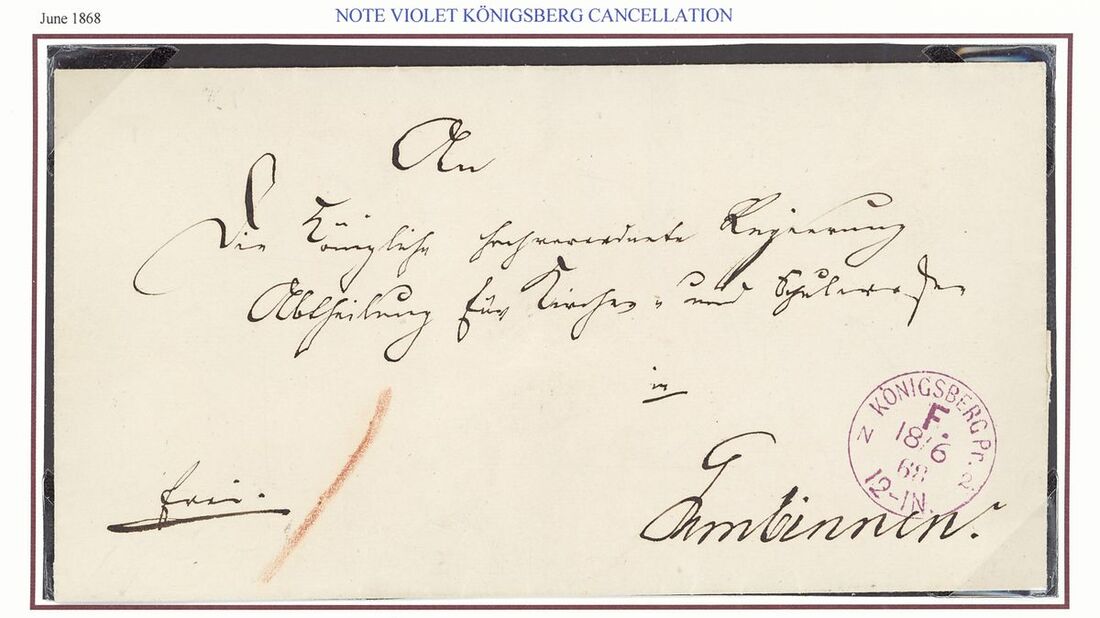 June 1868
NOTE VIOLET KÖNIGSBERG CANCELLATION
An
Die Königliche hochverordnete Regierung
Abtheilung für Kirchen- und Schulwesen
in
Gumbinnen.
frei.
KÖNIGSBERG Pr.
F.
18/6
68
12-1N.